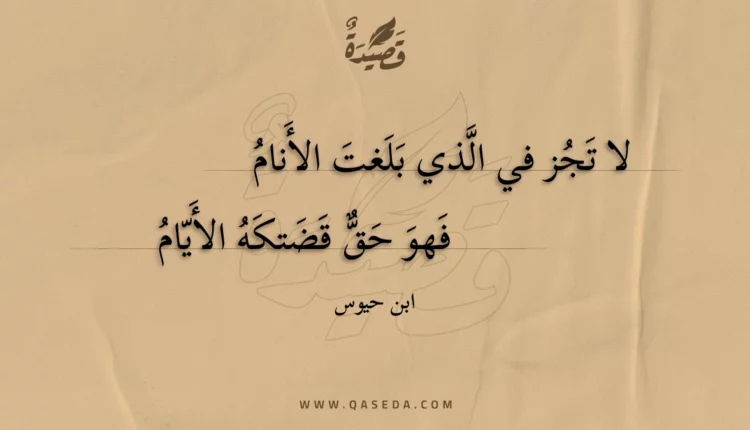 قَصِيدَةٌ
لا تَجُز في الَّذي بَلَغتَ الأَنامُ
فَهوَ حَقٌّ قَضَتكَهُ الأَيّامُ
ابن حيوس
WWW.QASEDA.COM